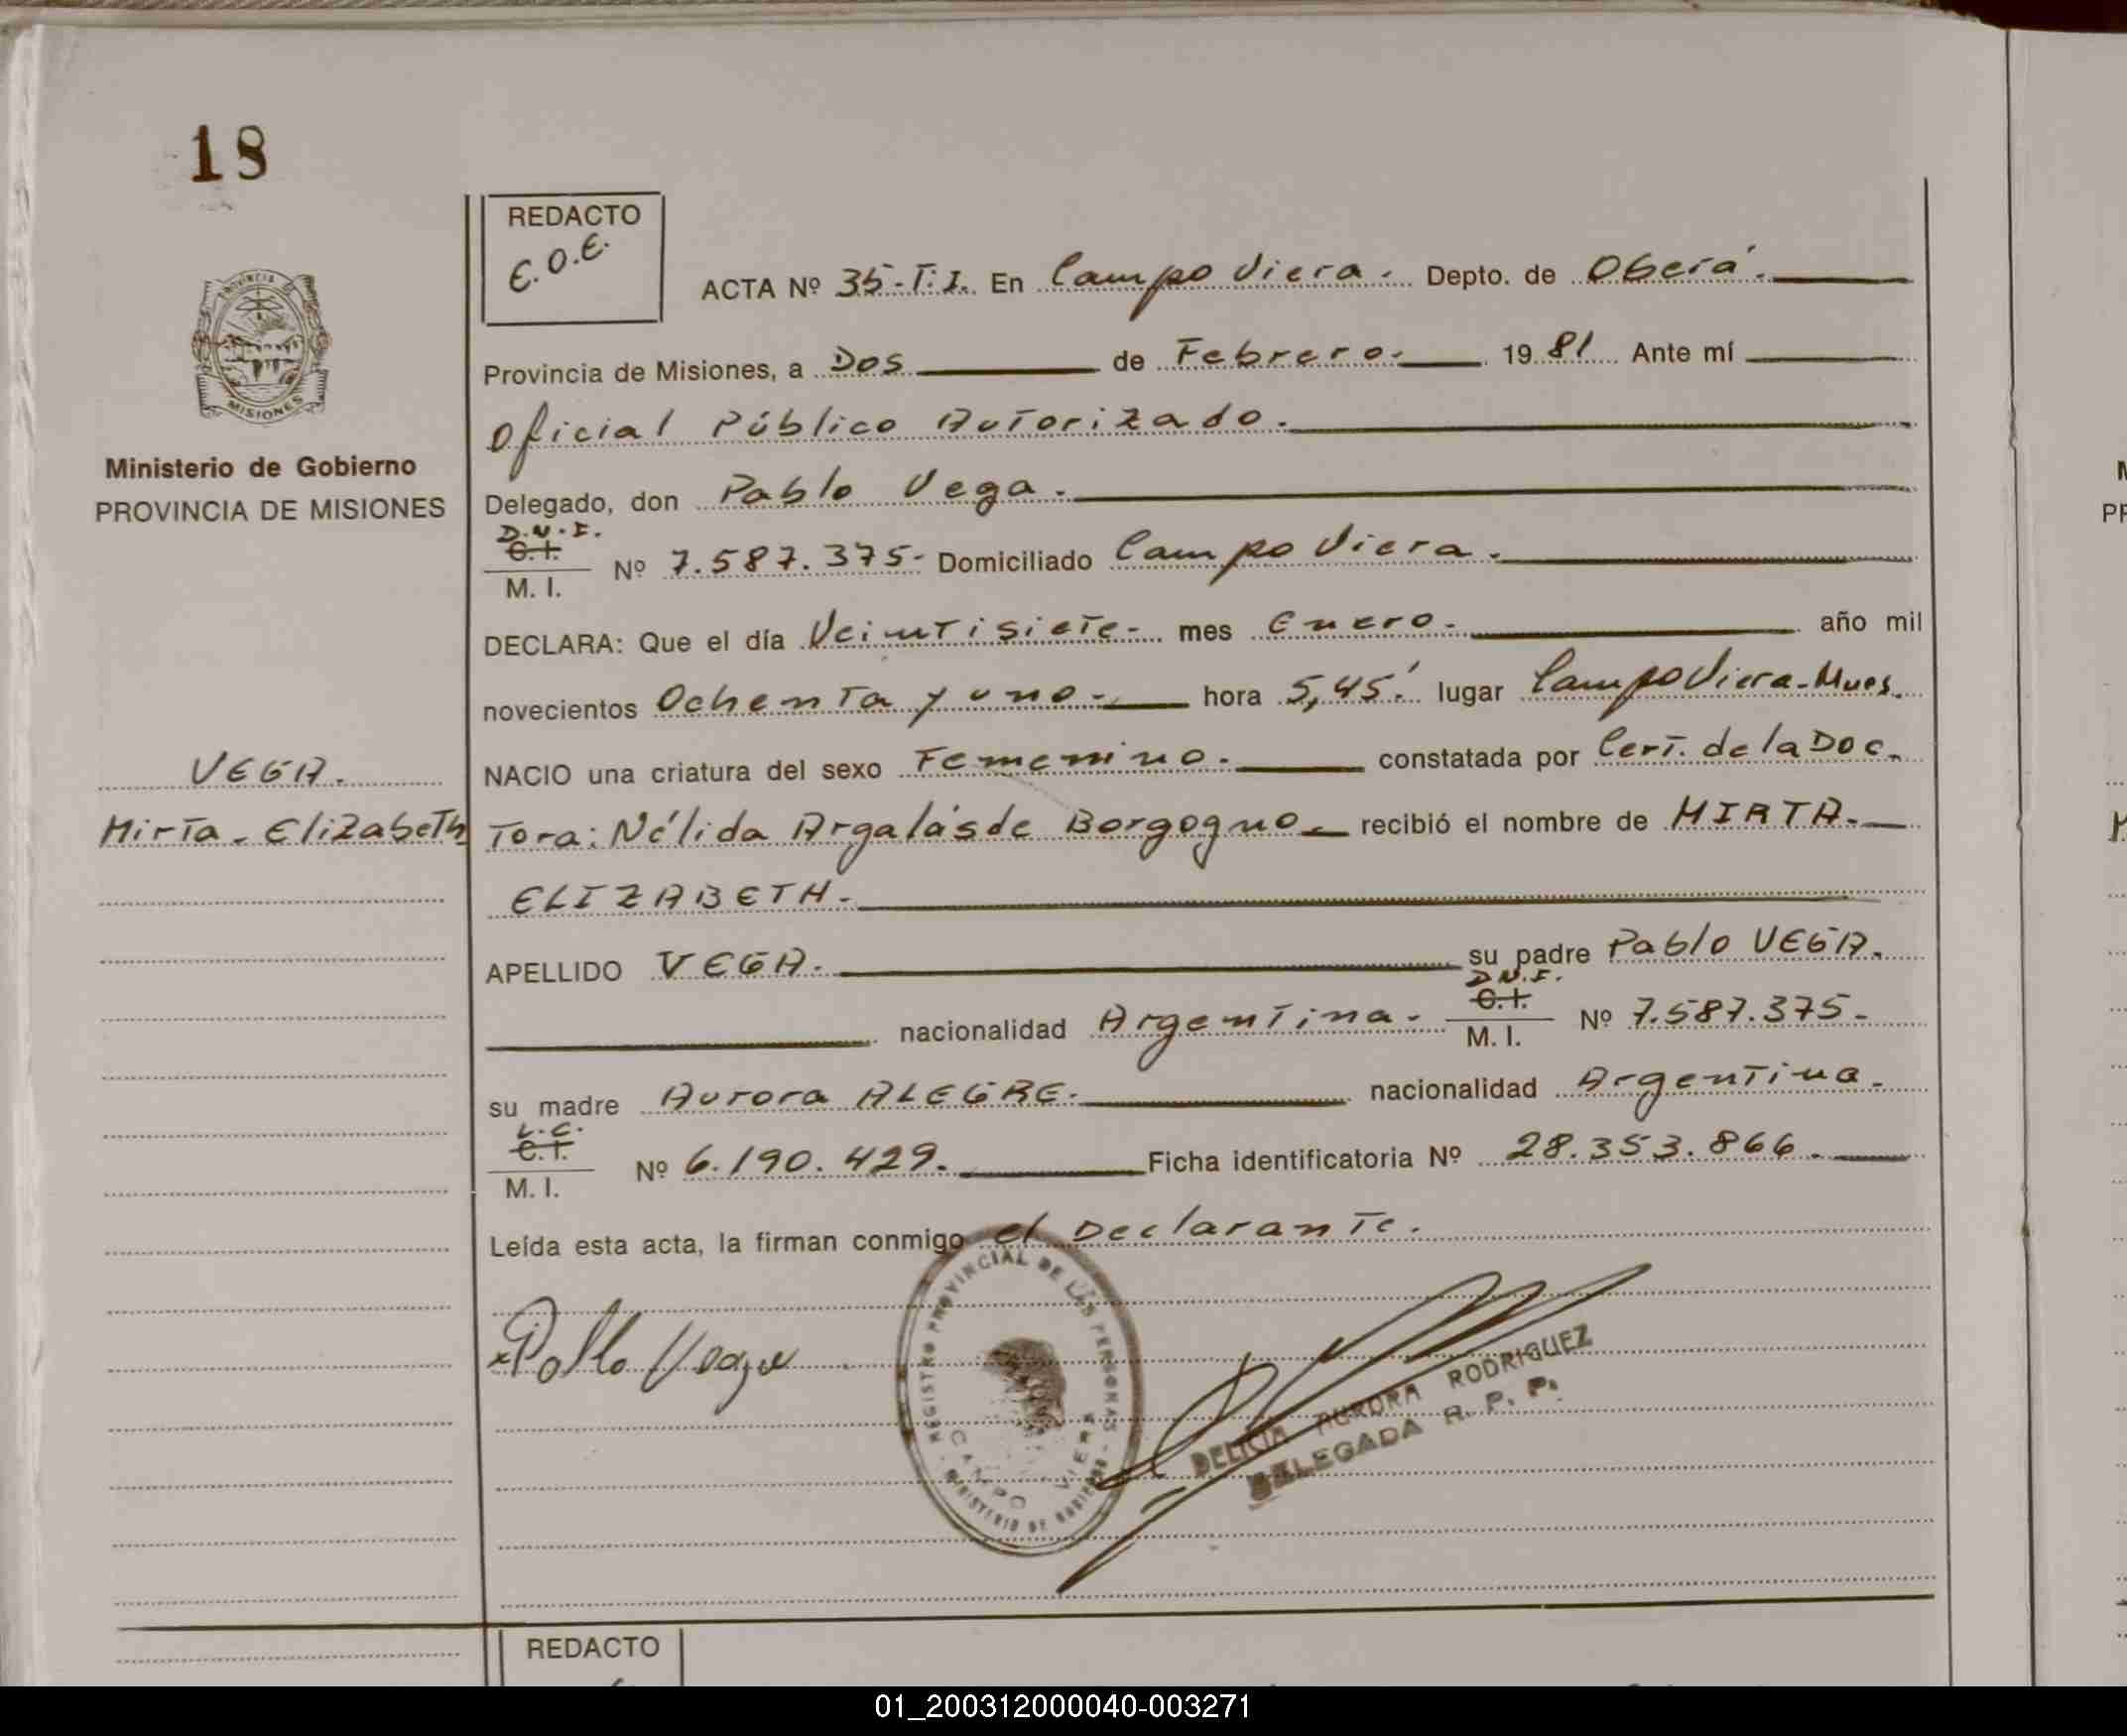 18
REDACTO
E.O.E.
ACTA Nº 35-T:I. En Campo Viera. Depto. de Oberá.
Provincia de Misiones, a Dos de Febrero. 1981 Ante mí
Oficial Público Autorizado.
Delegado, don Pablo Vega.
D.N.I.
C.I.
M. I. Nº 7.587.375- Domiciliado Campo Viera.
DECLARA: Que el día Veintisiete- mes Enero. año mil
novecientos Ochenta y uno- hora 5,45' lugar Campo Viera-Mnes.
NACIO una criatura del sexo Femenino. constatada por Cert. de la Doc-
tora: Nélida Argalás de Borgogno recibió el nombre de MIRTA-
ELIZABETH-
APELLIDO VEGA. su padre Pablo VEGA.
D.N.I.
C.I.
nacionalidad Argentina- M. I. Nº 7.587.375-
su madre Aurora ALEGRE. nacionalidad Argentina-
L.C.
C.I.
M. I. Nº 6.190.429. Ficha identificatoria Nº 28.353.866.
Leída esta acta, la firman conmigo el Declarante.
Pablo Vega
REGISTRO PROVINCIAL DE LAS PERSONAS
CAMPO VIERA
MINISTERIO DE GOBIERNO
DELICIA AURORA RODRIGUEZ
DELEGADA R. P. P.
PROVINCIA DE
MISIONES
Ministerio de Gobierno
PROVINCIA DE MISIONES
VEGA.
Mirta-Elizabeth
REDACTO
M
PR
01_200312000040-003271